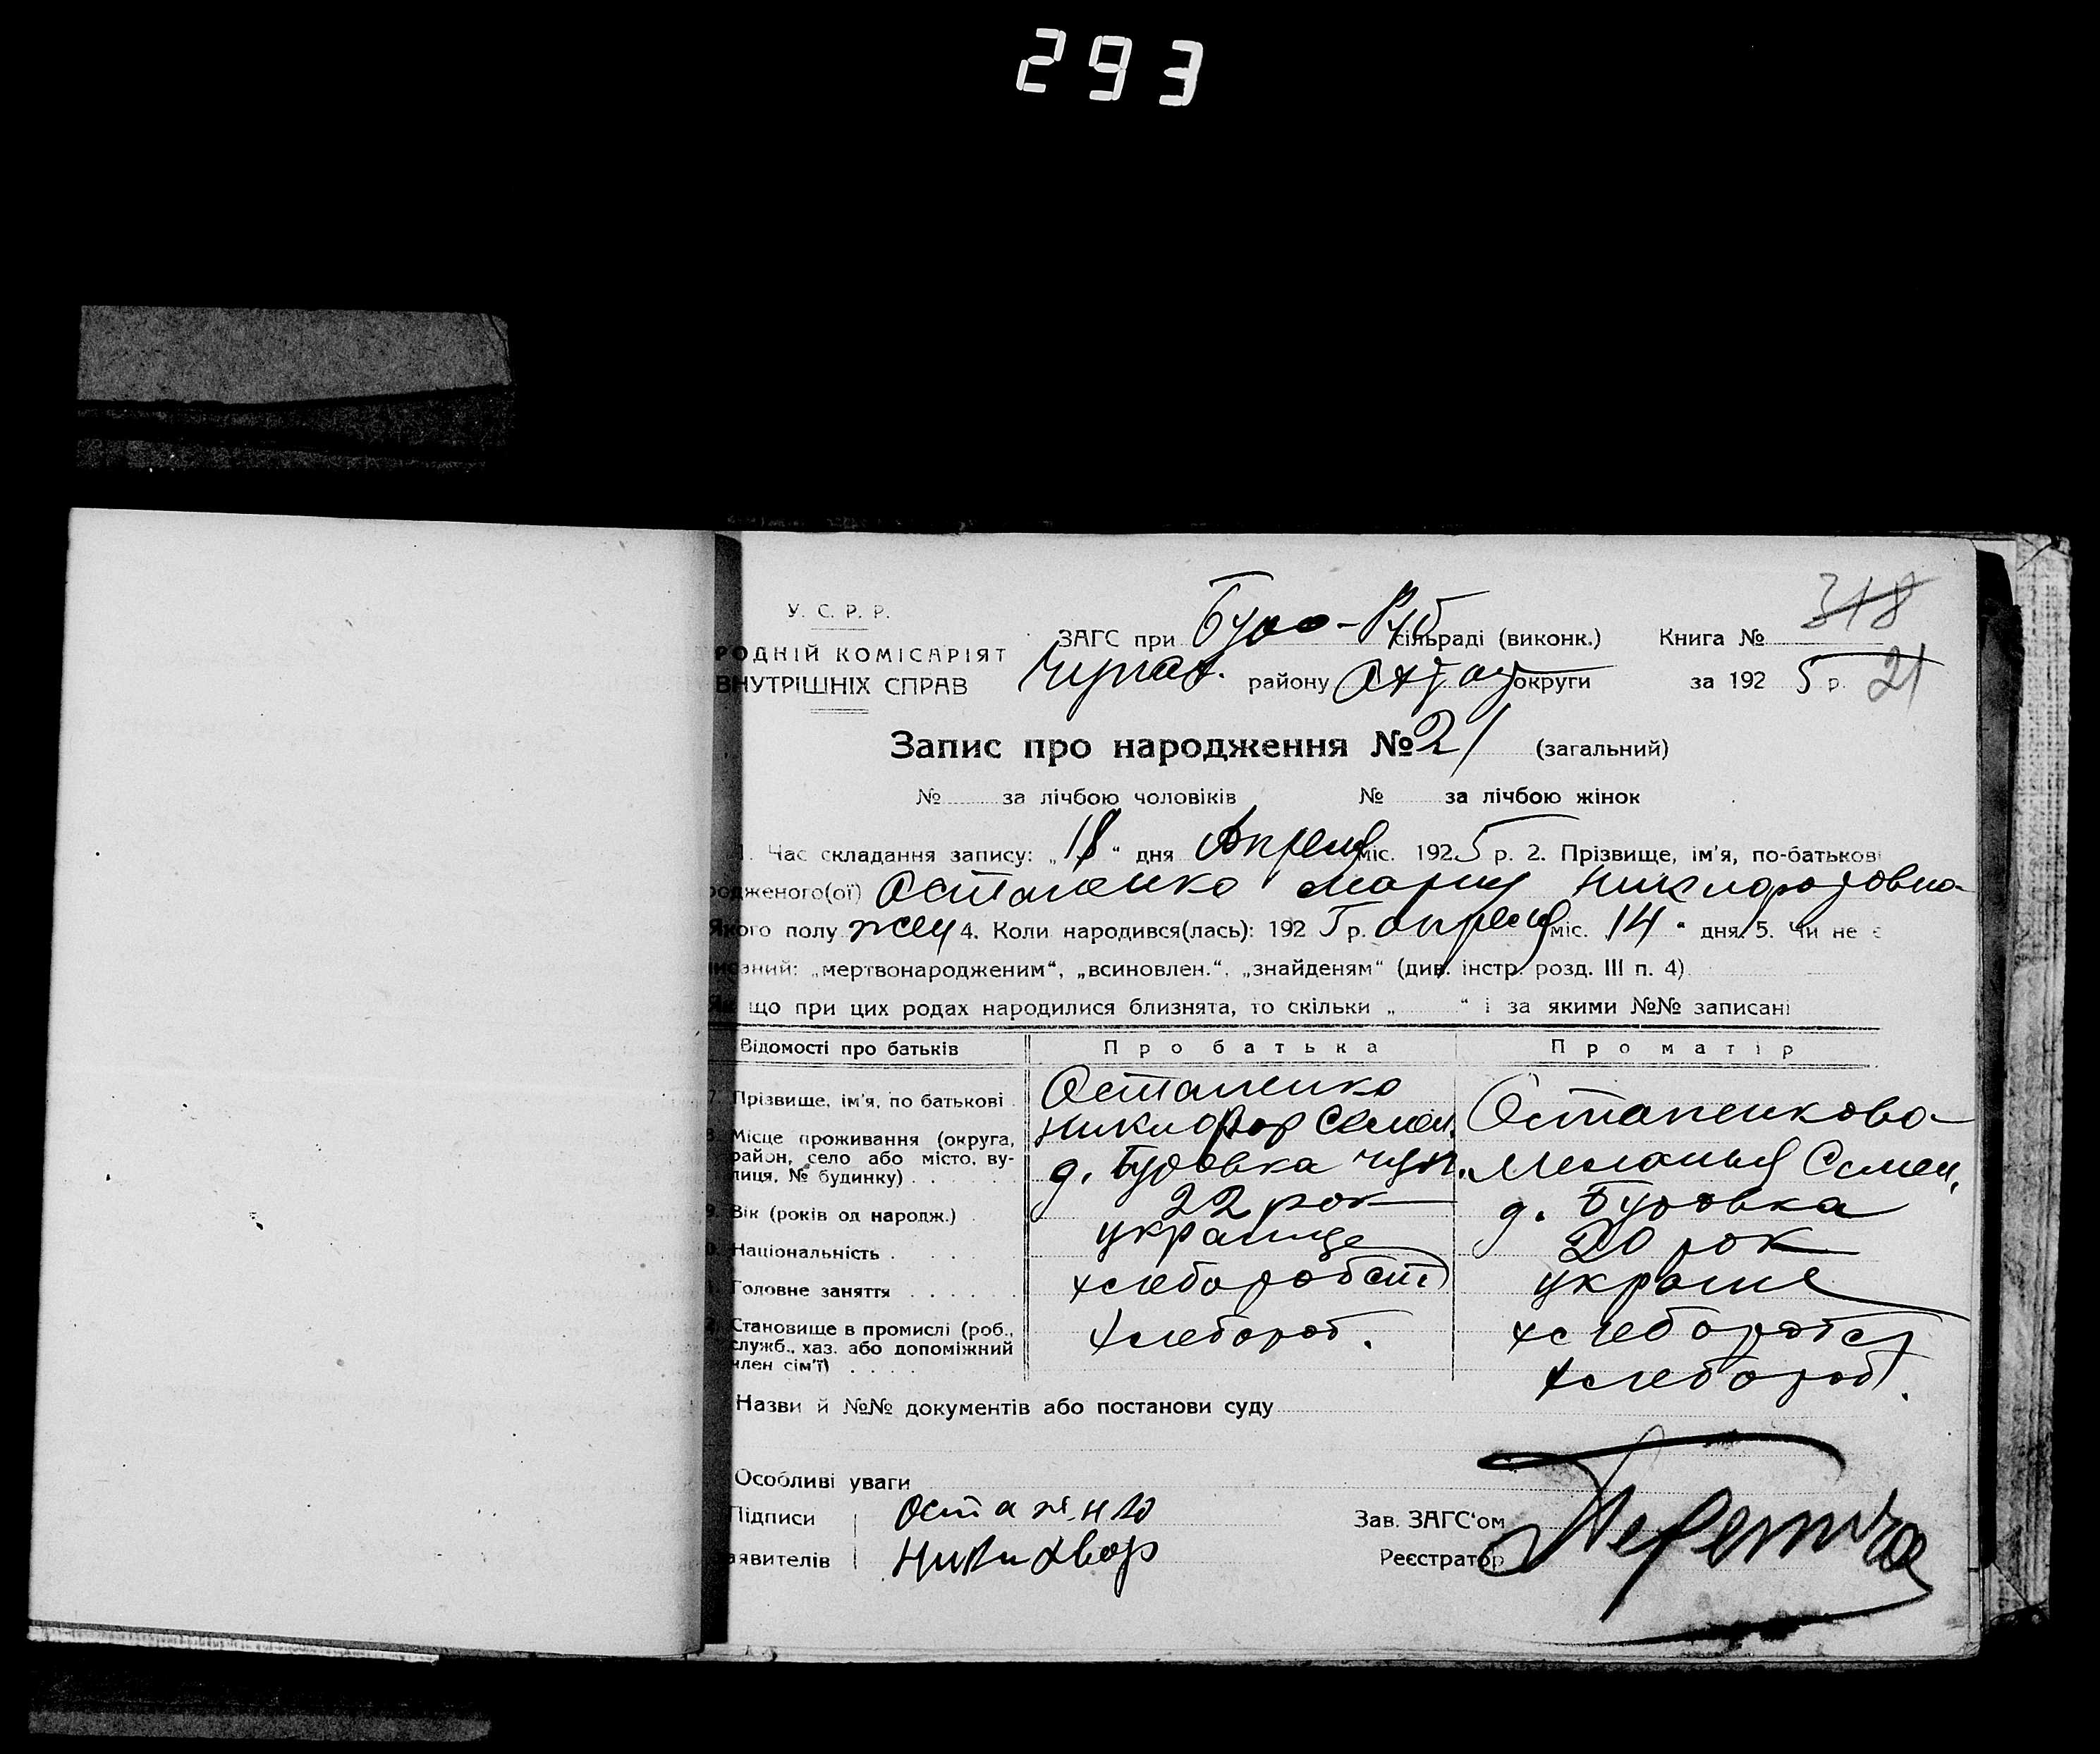 293
У. С. Р. Р.
РОДНІЙ КОМІСАРІЯТ
ВНУТРІШНІХ СПРАВ
ЗАГС при Буро-Руб сільраді (виконк.) Книга № 318
Чупах. району Охт округи за 1925 р. 21
Запис про народження № 21 (загальний)
№ за лічбою чоловіків № за лічбою жінок
1. Час складання запису: „18“ дня Апреля міс. 1925 р. 2. Прізвище, ім'я, по-батькові
родженого(ої) Остапенко Мария Никифоровна
Якого полу жен 4. Коли народився(лась): 1925 р. апреля міс. 14 " дня. 5. Чи не є
исаний: „мертвонародженим“, „всиновлен.“, „знайденям“ (див. інстр. розд. III п. 4)
Як що при цих родах народилися близнята, то скільки „ “ і за якими №№ записані
Відомості про батьків Про батька Про матір
7. Прізвище, ім'я, по батькові
8. Місце проживання (округа,
район, село або місто, ву-
лиця, № будинку)
9. Вік (років од народж.)
Національність
Головне заняття
Становище в промислі (роб.,
служб., хаз. або допоміжний
член сім'ї)
Остапенко
Никифор Семен.
д. Буровка Чуп.
22 рок
украинце
хлеборобст
хлебороб.
Остапенкова
Меланья Семен.
д. Буровка
20 рок
украине
хлеборобст
хлебороб.
Назви й №№ документів або постанови суду
Особливі уваги
Підписи
аявителів
Никифор
Зав. ЗАГС'ом
Реєстратор